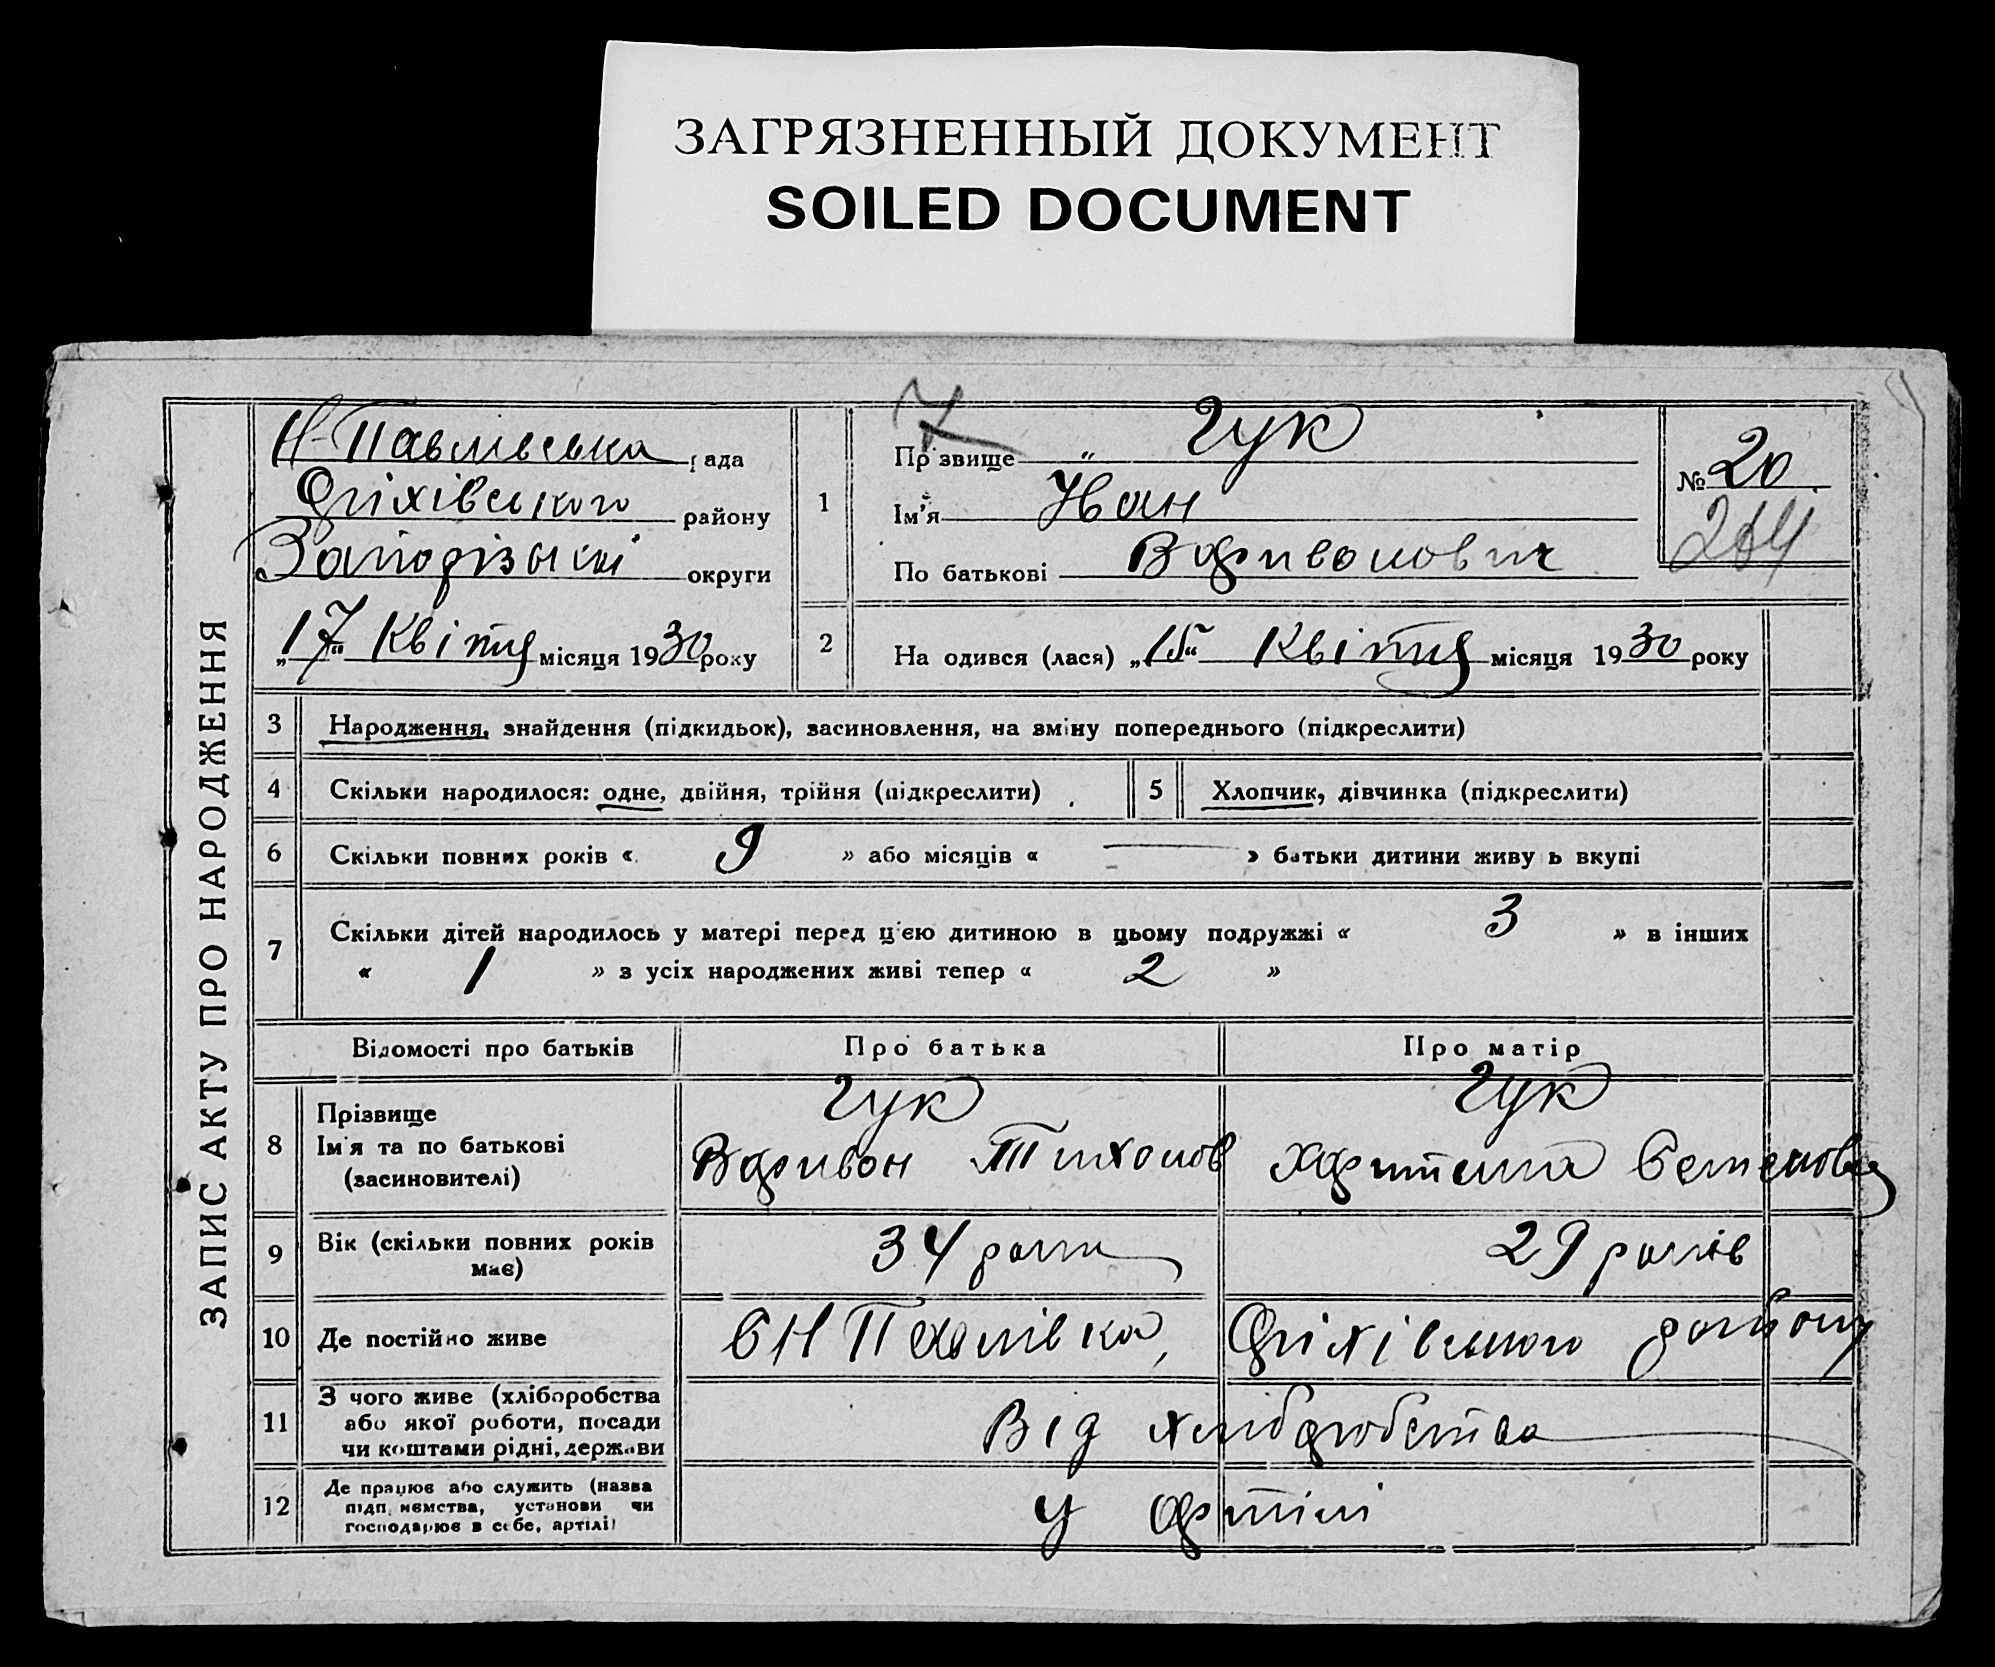 ЗАГРЯЗНЕННЫЙ ДОКУМЕНТ
SOILED DOCUMENT
ЗАПИС АКТУ ПРО НАРОДЖЕННЯ
Н-Павлівська рада
Оріхівського району
Запорізької округи
„17“ Квітня місяця 1930 року
1
Прізвище Гук
Ім'я Иван
По батькові Варивонович
№ 20
2
На одився (лася) „15“ Квітня місяця 1930 року
3 Народження, знайдення (підкидьок), засиновлення, на зміну попереднього (підкреслити)
4 Скільки народилося: одне, двійня, трійня (підкреслити) 5 Хлопчик, дівчинка (підкреслити)
6 Скільки повних років « 9 » або місяців « — » батьки дитини живу ь вкупі
7 Скільки дітей народилось у матері перед ц'єю дитиною в цьому подружжі « 3 » в інших
« 1 » з усіх народжених живі тепер « 2 »
Відомості про батьків Про батька Про матір
8 Прізвище
Ім'я та по батькові
(засиновителі)
Гук
Варивон Тихонов
Гук
Харитина Семенова
9 Вік (скільки повних років
має)
34 роки 29 років
10 Де постійно живе С Н Павлівка, Оріхівського району
11 З чого живе (хліборобства
або якої роботи, посади
чи коштами рідні, держави
Від хліборобства
12 Де працює або служить (назва
підп иємства, установи чи
господарює в себе, артілі)
У артілі